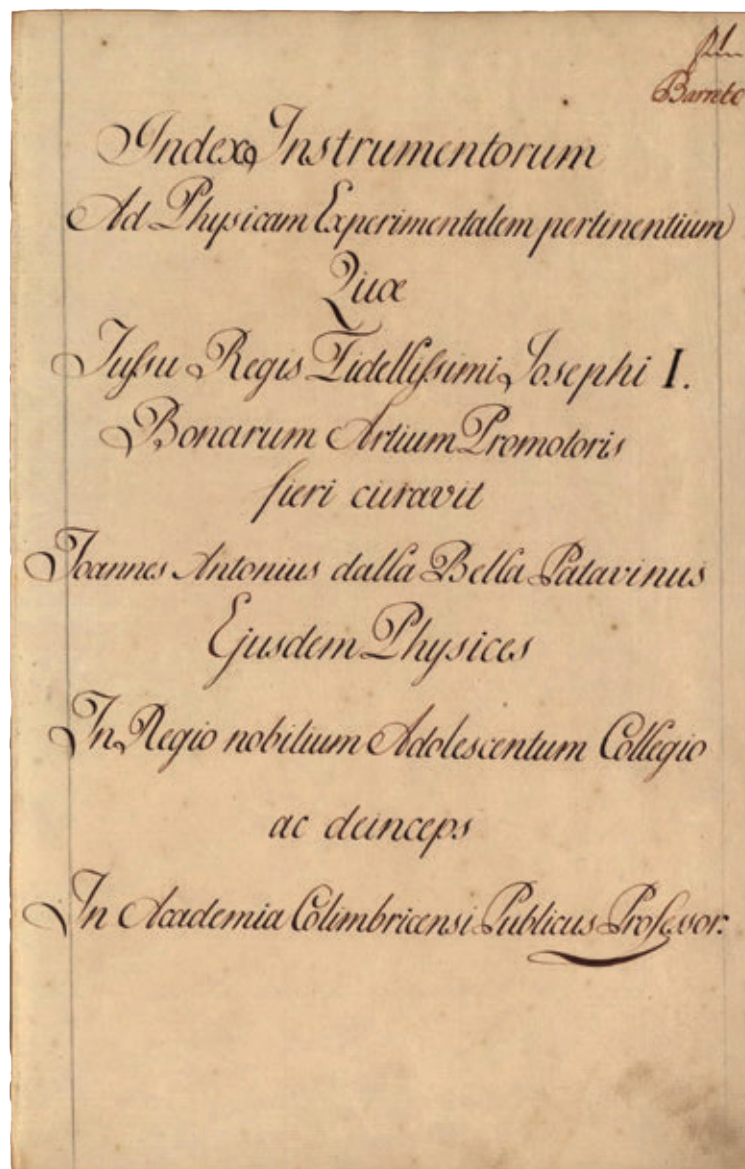 Barreto
Index Instrumentorum
Ad Physicam Experimentalem pertinentium
Quæ
Jussu Regis Fidellissimi Josephi I.
Bonarum Artium Promotoris
fieri curavit
Joannes Antonius dalla Bella Patavinus
Ejusdem Physices
In Regio nobilium Adolescentum Collegio
ac deinceps
In Academia Colimbricensi Publicus Professor.